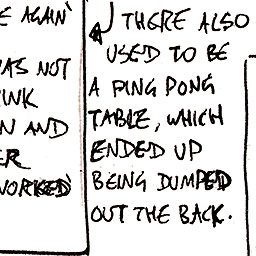 E AGAIN'
WAS NOT
INK
N AND
ER
WORKED
THERE ALSO
USED TO BE
A PING PONG
TABLE, WHICH
ENDED UP
BEING DUMPED
OUT THE BACK.